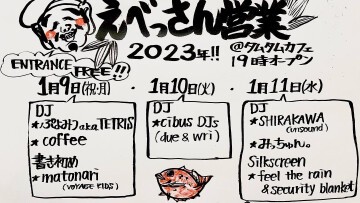 えべっさん営業
2023年!!
@タムタムカフェ
19時オープン
ENTRANCE FREE!!
1月9日(祝月)
DJ
★ぷよみつ aka TETRIS
★coffee
書き初め
★matonari
(VOYAGE KIDS)
・1月10日(火)
DJ
★cibus DJs
(due & wri)
・1月11日(水)
DJ
★SHIRAKAWA
(unsound)
★みっちゃん。
Silkscreen
★feel the rain
& security blanket